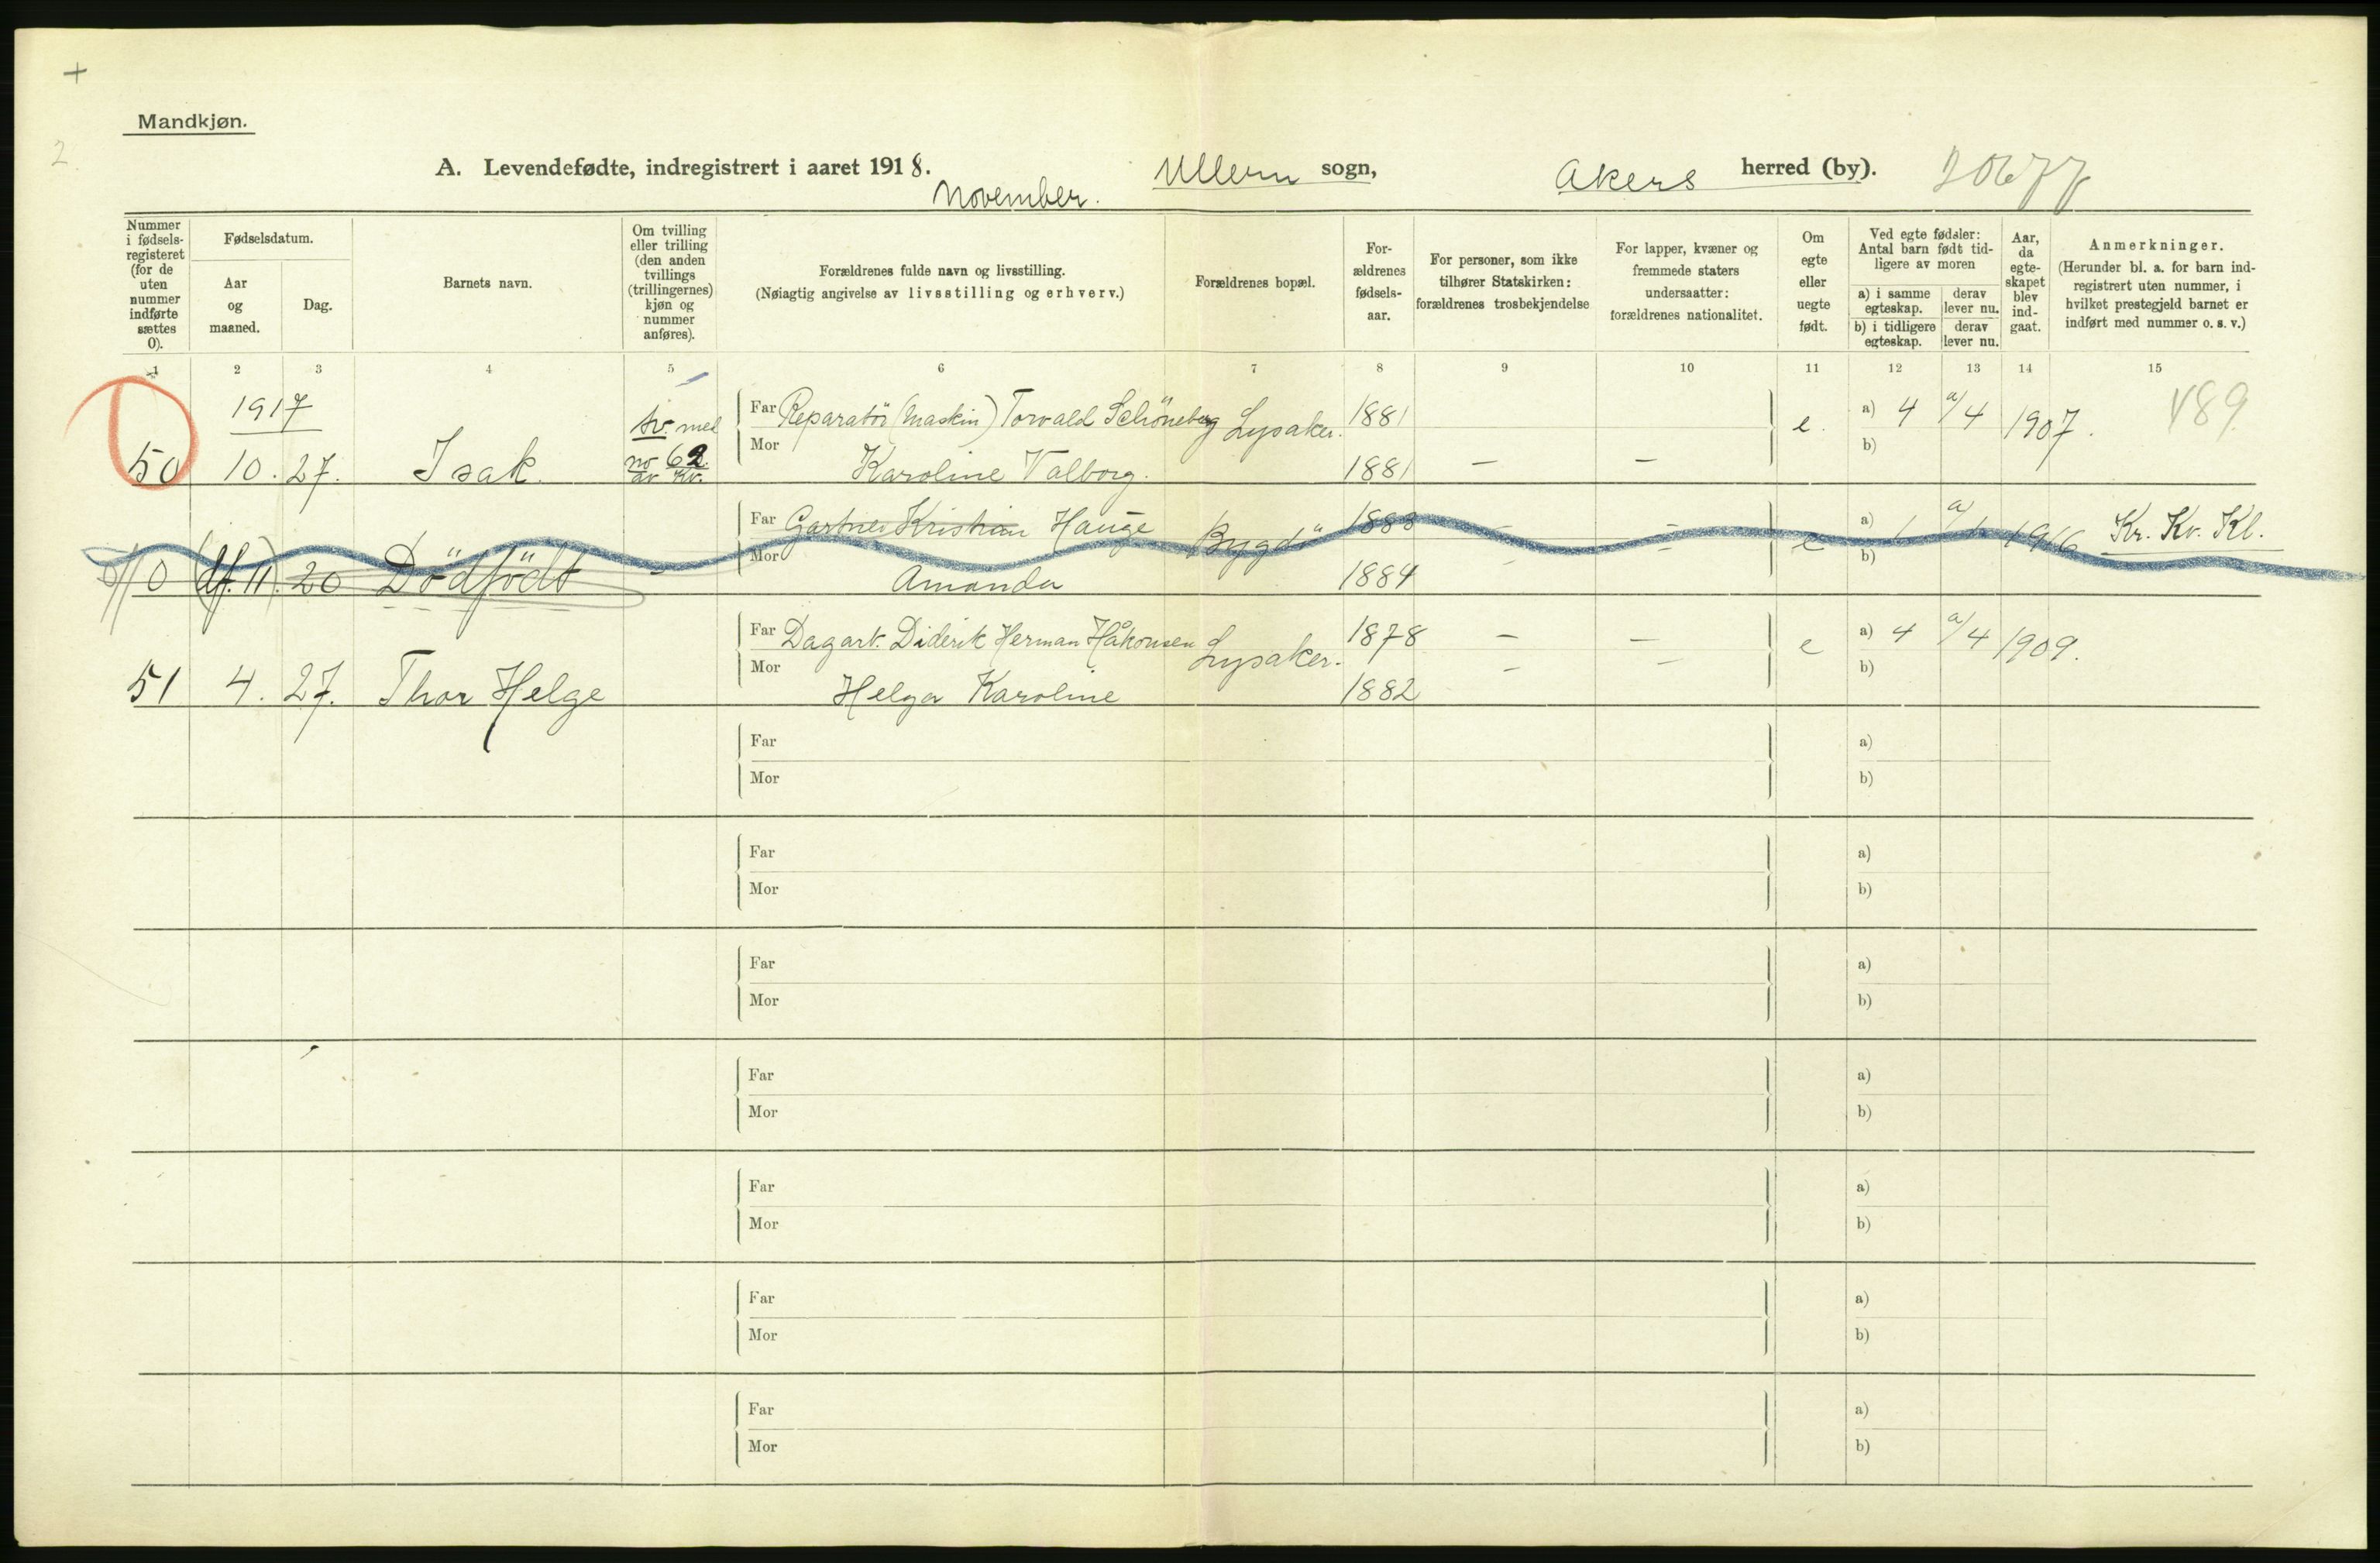 +
Mandkjøn.
2
A. Levendefødte, indregistrert i aaret 1918. Ullern sogn, Akers herred (by). 20677
November.
Nummer i fødsels-registeret (for de uten nummer indførte sættes 0).
Fødselsdatum.
Aar og maaned.
Dag.
Barnets navn.
Om tvilling eller trilling (den anden tvillings (trillingernes) kjøn og nummer anføres).
Forældrenes fulde navn og livsstilling.
(Nøiagtig angivelse av livsstilling og erhverv.)
Forældrenes bopæl.
For-ældrenes fødsels-aar.
For personer, som ikke tilhører Statskirken: forældrenes trosbekjendelse
For lapper, kvæner og fremmede staters undersaatter: forældrenes nationalitet.
Om egte eller uegte født.
Ved egte fødsler: Antal barn født tid-ligere av moren
a) i samme egteskap.
derav lever nu.
b) i tidligere egteskap.
derav lever nu.
Aar, da egte-skapet blev ind-gaat.
Anmerkninger.
(Herunder bl. a. for barn ind-registrert uten nummer, i hvilket prestegjeld barnet er indført med nummer o. s. v.)
1 2 3 4 5 6 7 8 9 10 11 12 13 14 15
1917 tv. med Far Reparatör (Maskin) Torvald Schöneberg Lysaker. 1881 e. a) 4 a/4 1907. 489
50 10. 27. Isak. no 62. av Kv. Mor Karoline Valborg. 1881 — — b)
Far Gartner Kristian Hauge Bygdö 1883 - - e a) 1 a/1 1916 Kr. Kv. Kl.
0 (df. 11). 20 Dödfödt - Mor Amanda 1884 - - b)
Far Dagarb. Diderik Herman Håkonsen Lysaker. 1878 — — e a) 4 a/4 1909.
51 4. 27. Thor Helge Mor Helga Karoline 1882 — — b)
Far a)
Mor b)
Far a)
Mor b)
Far a)
Mor b)
Far a)
Mor b)
Far a)
Mor b)
Far a)
Mor b)
Far a)
Mor b)